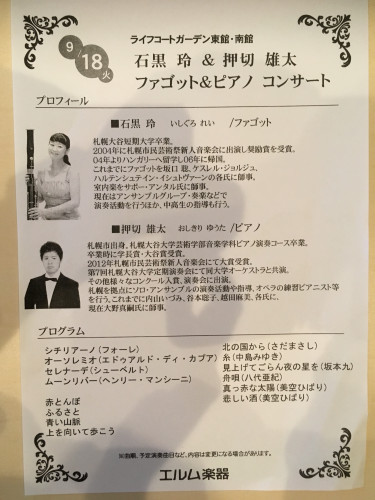 9/18火
ライフコートガーデン東館・南館
石黒 玲 & 押切 雄太
ファゴット&ピアノ コンサート
プロフィール
■石黒 玲 いしぐろ れい /ファゴット
札幌大谷短期大学卒業。
2004年に札幌市民芸術祭新人音楽会に出演し奨励賞を受賞。
04年よりハンガリーへ留学し06年に帰国。
これまでにファゴットを坂口 聡、ケスレル・ジョルジュ、
ハルテンシュテイン・イシュトヴァーンの各氏に師事。
室内楽をサボー・アンタル氏に師事。
現在はアンサンブルグループ・奏楽などで
演奏活動を行うほか、中高生の指導も行う。
■押切 雄太 おしきり ゆうた/ピアノ
札幌市出身。札幌大谷大学芸術学部音楽学科ピアノ演奏コース卒業。
卒業時に学長賞・大谷賞受賞。
2012年札幌市民芸術祭新人音楽会にて大賞受賞。
第7回札幌大谷大学定期演奏会にて同大学オーケストラと共演。
その他様々なコンクール入賞、演奏会に出演。
札幌を拠点にソロ・アンサンブルの演奏活動や指導、オペラの練習ピアニスト等
を行う。これまでに内山いづみ、谷本聡子、越田麻美、各氏に、
現在大野眞嗣氏に師事。
プログラム
シチリアーノ(フォーレ)
オーソレミオ(エドゥアルド・ディ・カプア)
セレナーデ(シューベルト)
ムーンリバー(ヘンリー・マンシーニ)
赤とんぼ
ふるさと
青い山脈
上を向いて歩こう
北の国から(さだまさし)
糸(中島みゆき)
見上げてごらん夜の星を(坂本九)
舟唄(八代亜紀)
真っ赤な太陽(美空ひばり)
悲しい酒(美空ひばり)
※効期、予定奏曲目など、内容は変更になる場合があります。
エルム楽器